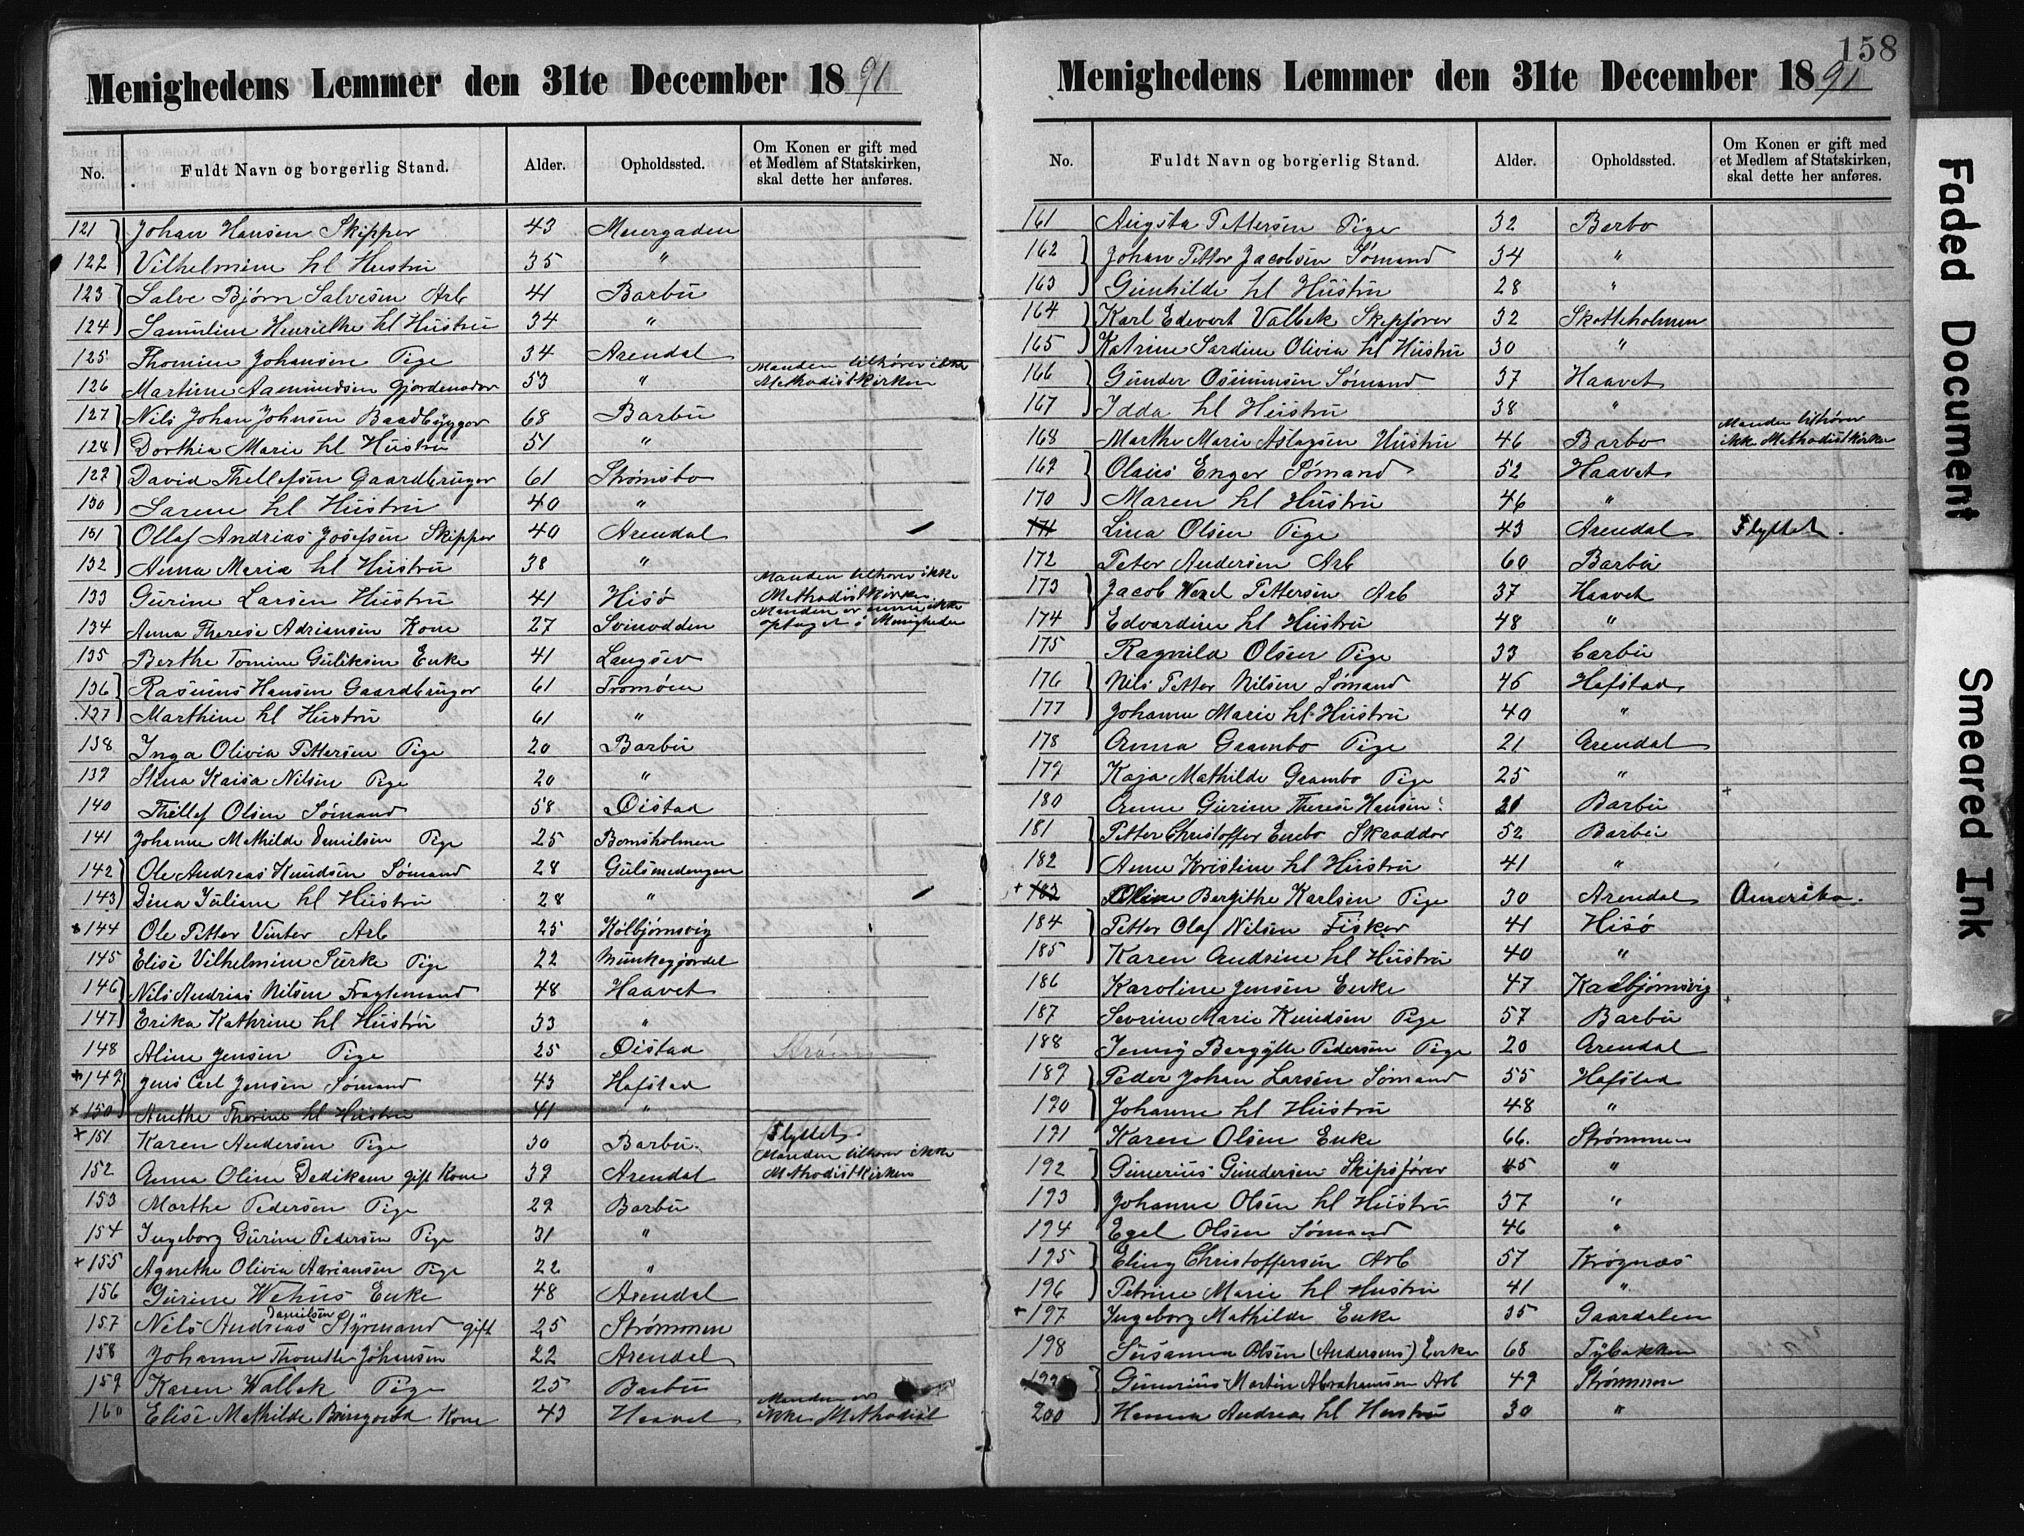 158
Menighedens Lemmer den 31te December 1891
No. Fuldt Navn og borgerlig Stand. Alder. Opholdssted. Om Konen er gift med et Medlem af Statskirken, skal dette her anføres.
121 Johan Hansen Skipper 43 Meiergaden
122 Vilhelmine hl Hustru 35 "
123 Salve Bjørn Salvesen Arb 41 Barbu
124 Samuline Henriette hl Hustru 34 "
125 Thomine Johansen Pige 34 Arendal
126 Martine Aamundsen Gjordemoder 53 " Manden tilhører ikke Methodistkirken
127 Nils Johan Johnsen Baadbygger 68 Barbu
128 Dorthia Marie hl Hustru 51 "
129 David Thellefsen Gaardbruger 61 Strømsbo
130 Sarene hl Hustru 40 "
131 Ollaf Andrias Josefsen Skipper 40 Arendal
132 Anna Maria hl Hustru 38 "
133 Gurine Larsen Hustru 41 Hisø Manden tilhører ikke Methodistkirken
134 Anna Therese Adriansen Kone 27 Svinodden Manden er ennu ikke optaget i Menigheden
135 Berthe Tomine Guliksen Enke 41 Langsev
136 Rasmus Hansen Gaardbruger 61 Tromøen
137 Marthine hl Hustru 61 "
138 Inga Olivia Pettersen Pige 20 Barbu
139 Stina Kaisa Nilsen Pige 20 "
140 Thellef Olsen Sømand 58 Øistad
141 Johanne Mathilde Danielsen Pige 25 Bomsholmen
142 Ole Andreas Knudsen Sømand 28 Gulsmedengen
143 Dina Juliane hl Hustru 28 "
144 Ole Petter Vinter Arb 25 Kolbjørnsvig
145 Elise Vilhelmine Surke Pige 22 Munkegjordet
146 Nils Andrias Nilsen Fragtemand 48 Haavet
147 Erika Kathrine hl Hustru 33 "
148 Aline Jensen Pige 25 Øistad
+ 149 Jens Carl Jensen Sømand 43 Hafstad
+ 150 Anethe Thorine hl Hustru 41 "
+ 151 Karen Andersen Pige 30 Barbu. Flyttet.
152 Anna Oline Dedikam gift Kone 39 Arendal Manden tilhører ikke Methodistkirken
153 Marthe Pedersen Pige 29 Barbu
154 Ingeborg Gurine Pedersen Pige 31 "
+ 155 Agnethe Olivia Adriansen Pige 22 "
156 Gurine Wehus Enke 48 Arendal
157 Nils Andreas Danielsen Styrmand gift 25 Strømmen
158 Johanne Thonette Johansen 22 Arendal
159 Karen Walbek Pige 25 Barbu
160 Elise Mathilde Kone 43 Haavet Manden er ikke Methodist
Menighedens Lemmer den 31te December 1891
No. Fuldt Navn og borgerlig Stand. Alder. Opholdssted. Om Konen er gift med et Medlem af Statskirken, skal dette her anføres.
161 Augsta Pettersen Pige 32 Barbo
162 Johan Petter Jacobsen Sømand 34 "
163 Gunhilde hl Hustru 28 "
164 Karl Edevert Valbek Skipsfører 32 Skotteholmen
165 Katrine Sardine Olivia hl Hustru 30 "
166 Gunder Osmunsen Sømand 37 Haavet
167 Idda hl Hustru 38 "
168 Marthe Marie Aslagsen Hustru 46 Barbo Manden tilhører ikke Methodistkirken
169 Olaus Enger Sømand 52 Haavet
170 Maren hl Hustru 46 "
171 Lina Olsen Pige 43 Arendal Flyttet.
172 Peter Andersen Arb 60 Barbu
173 Jacob Wesel Pettersen Arb 37 Haavet
174 Edvardine hl Hustru 48 "
175 Ragnild Olsen Pige 33 Barbu
176 Nils Petter Nilsen Sømand 46 Hafstad
177 Johanne Marie hl Hustru 40 "
178 Anna Grambo Pige 21 Arendal
179 Kaja Mathilde Grambo Pige 25 "
180 Anne Gurine Therese Hansen 21 Barbu +
181 Petter Christoffer Enebo Skradder 52 Barbu
182 Anne Kristine hl Hustru 41 "
+ 183 Oline Bergithe Karlsen Pige 30 Arendal Amerika.
184 Petter Olaf Nilsen Fisker 41 Hisø
185 Karen Andsine hl Hustru 40 "
186 Karoline Jensen Enke 47 Kolbjørnsvig
187 Sevrine Marie Knudsen Pige 57 Barbu +
188 Jenny Bergytte Pedersen Pige 20 Arendal
189 Peder Johan Larsen Sømand 55 Hafstad
190 Johanne hl Hustru 48 "
191 Karen Olsen Enke 66. Strømmen
192 Gunerius Gundersen Skipsfører 45 "
193 Johanne Olsen hl Hustru 37 "
194 Egel Olsen Sømand 46 "
195 Eling Christoffersen Arb 57 Krøgnæs
196 Petrine Marie hl Hustru 41 "
+ 197 Ingeborg Mathilde Enke 35 Gaardalen
198 Susanna Olsen (Andersens) Enke 68 Tybakken
199 Gunerius Martin Abrahamsen Arb 49 Strømmen
200 Hanna Andrea hl Hustru 30 "
Faded Document
Smeared Ink